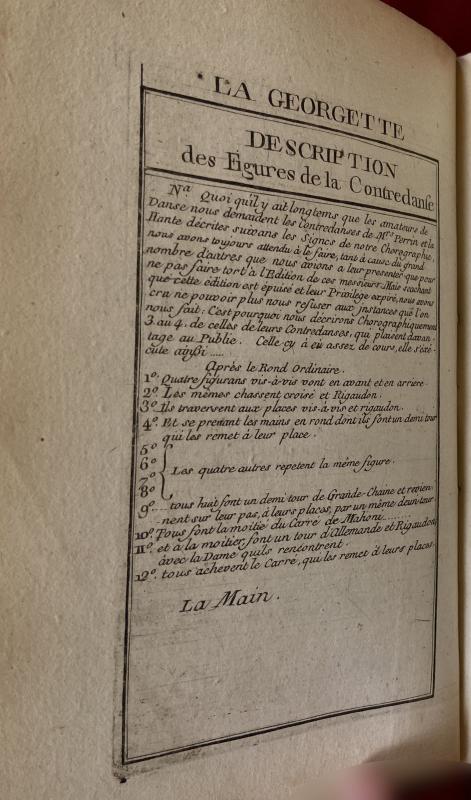 LA GEORGETTE
DESCRIPTION
des Figures de la Contredanse
Na Quoi qu'il y ait longtems que les amateurs de
Danse nous demandent les Contredanses de Mrs Perrin et la
Hante décrites suivans les Signes de notre Chorographie,
nous avons toujours attendu à le faire, tant à cause du grand
nombre d'autres que nous avions a leur presenter que pour
ne pas faire tort à l'Edition de ces messieurs. Mais seachant
que cette édition est épuisé et leur Privilége expiré, nous avons
cru ne pouvoir plus nous refuser aux jnstances que l'on
nous fait: C'est pourquoi nous décrirons Chorographiquement
3 au 4. de celles de leurs Contredanses, qui plaisent davan-
tage au Public. Celle-cy à eu assez de cours, elle s'éxé-
cute ainsi .....
Après le Rond Ordinaire.
1º. Quatre figurans vis-à-vis vont en avant et en arriere
2º. Les mêmes chassent croisé et Rigaudon.
3º. Ils traversent aux places vis-à-vis et rigaudon.
4º. Et se prenant les mains en rond dont ils font un demi tour
qui les remet à leur place.
5º
6º
7º
8º
Les quatre autres repetent la même figure.
9º.... tous huit font un demi tour de Grande-Chaine et revien-
nent sur leur pas, à leurs places, par un même demi-tour.
10º. Tous font la moitié du Carré de Mahoni....
11º. et à la moitier, font un tour d'Allemande et Rigaudon,
avec la Dame qu'ils rencontrent.
12º. tous achevent le Carré, qui les remet à leurs places.
La Main.